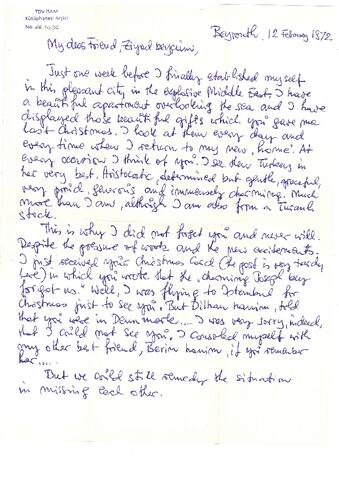 TOV HAM
Kütüphanesi Arşivi
No
Beyrouth, 12 February 1972
My dear Friend, Ziyad beycim,
Just one week before I finally established myself
in this pleasant city, in the explosive Middle East, I have
a beautiful apartment overlooking the sea and I have
displayed those beautiful gifts which you gave me
last Christmas. I look at them every day and
every time when I return to my new "home". At
every occasion I think of you. I see then Turkey in
her very best. Aristocratic, determined but gentle, graceful,
very proud, generous and immensely charming. Much
more than I am, although I am also from a Turanic
stock.
This is why I did not forget you and never will.
Despite the pressure of work and the new excitements.
I just received your Christmas Card (the post is very tardy
here) in which you wrote that the "charming Joseph bey
forgot us." Well, I was flying to Istanbul for
Christmas just to see you. But Dilhan hanim, told
that you were in Denmark.... I was very sorry, indeed,
that I could not see you. I consoled myself with
my other best friend, Berin hanim, if you remember
her.....
But we could still remedy the situation
in missing each other.